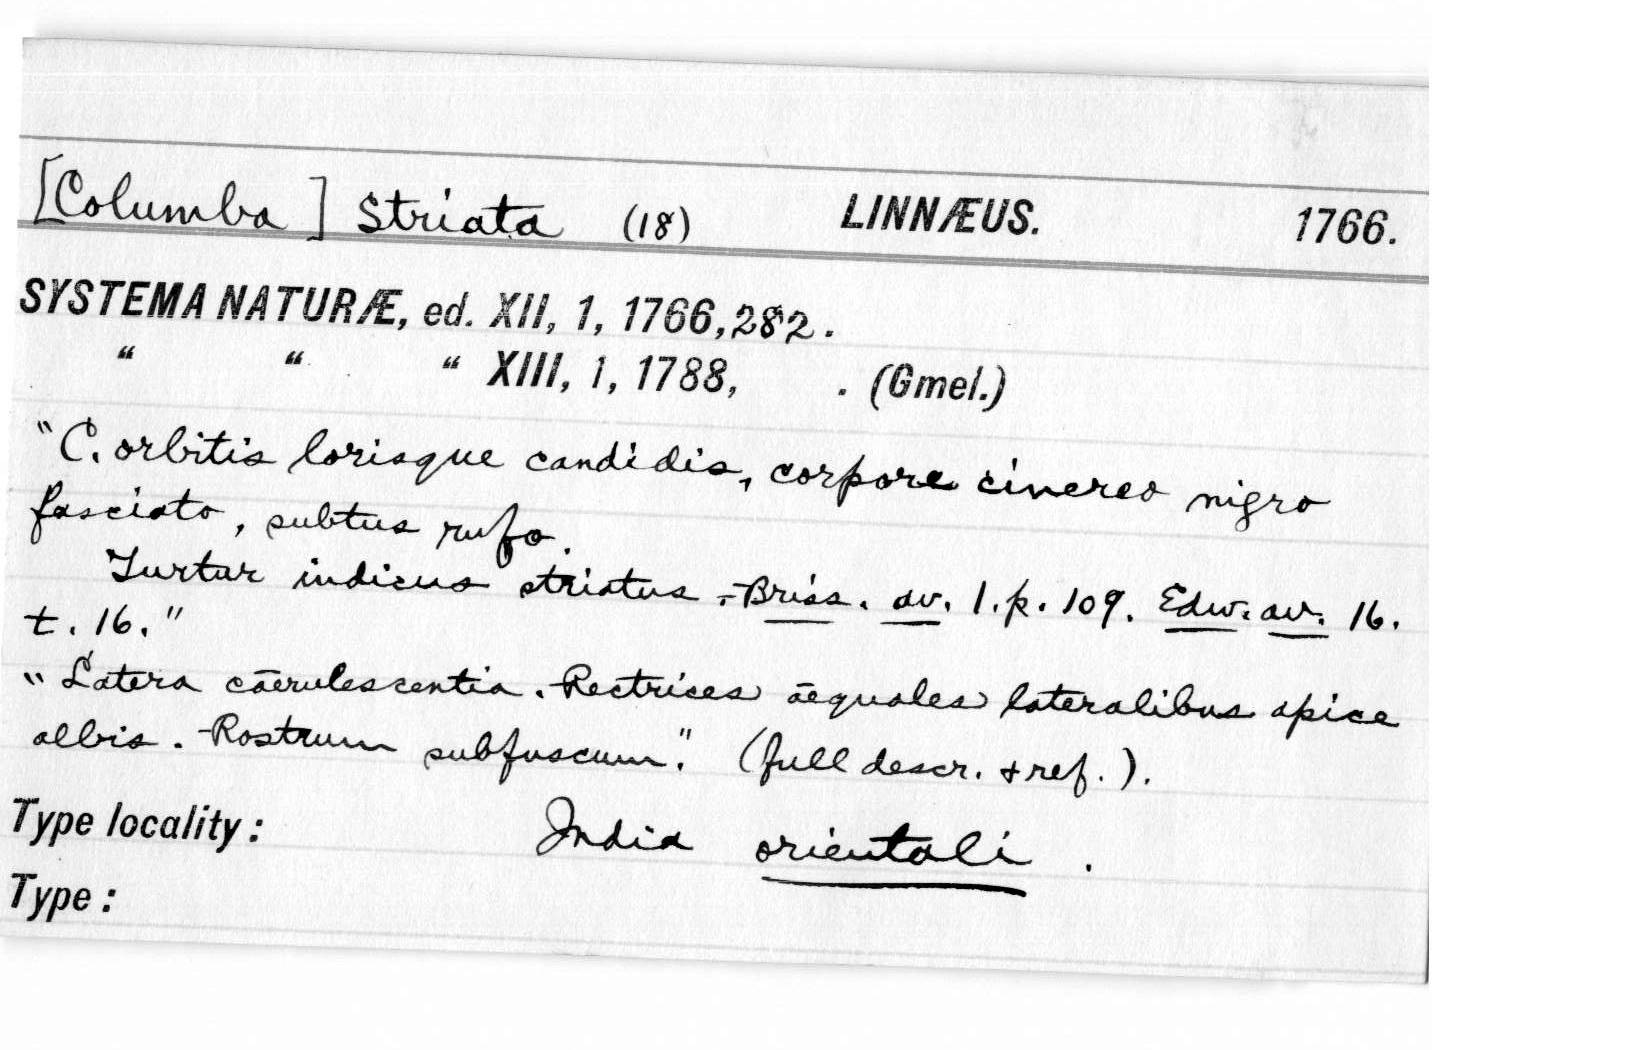 [Columba] Striata (18) LINNÆUS. 1766.
SYSTEMA NATURÆ, ed. XII, 1, 1766, 282.
“ “ “ XIII, 1, 1788, . (Gmel.)
"C. orbitis lorisque candidis, corpore cinereo nigro
fasciato, subtus rufo.
Turtur indicus striatus. Briss. av. 1. p. 109. Edw. av. 16.
t. 16."
"Latera cāerulescentia. Rectrices āequales lateralibus apice
albis. Rostrum subfuscum." (full descr. + ref.).
Type locality: India orientali.
Type: